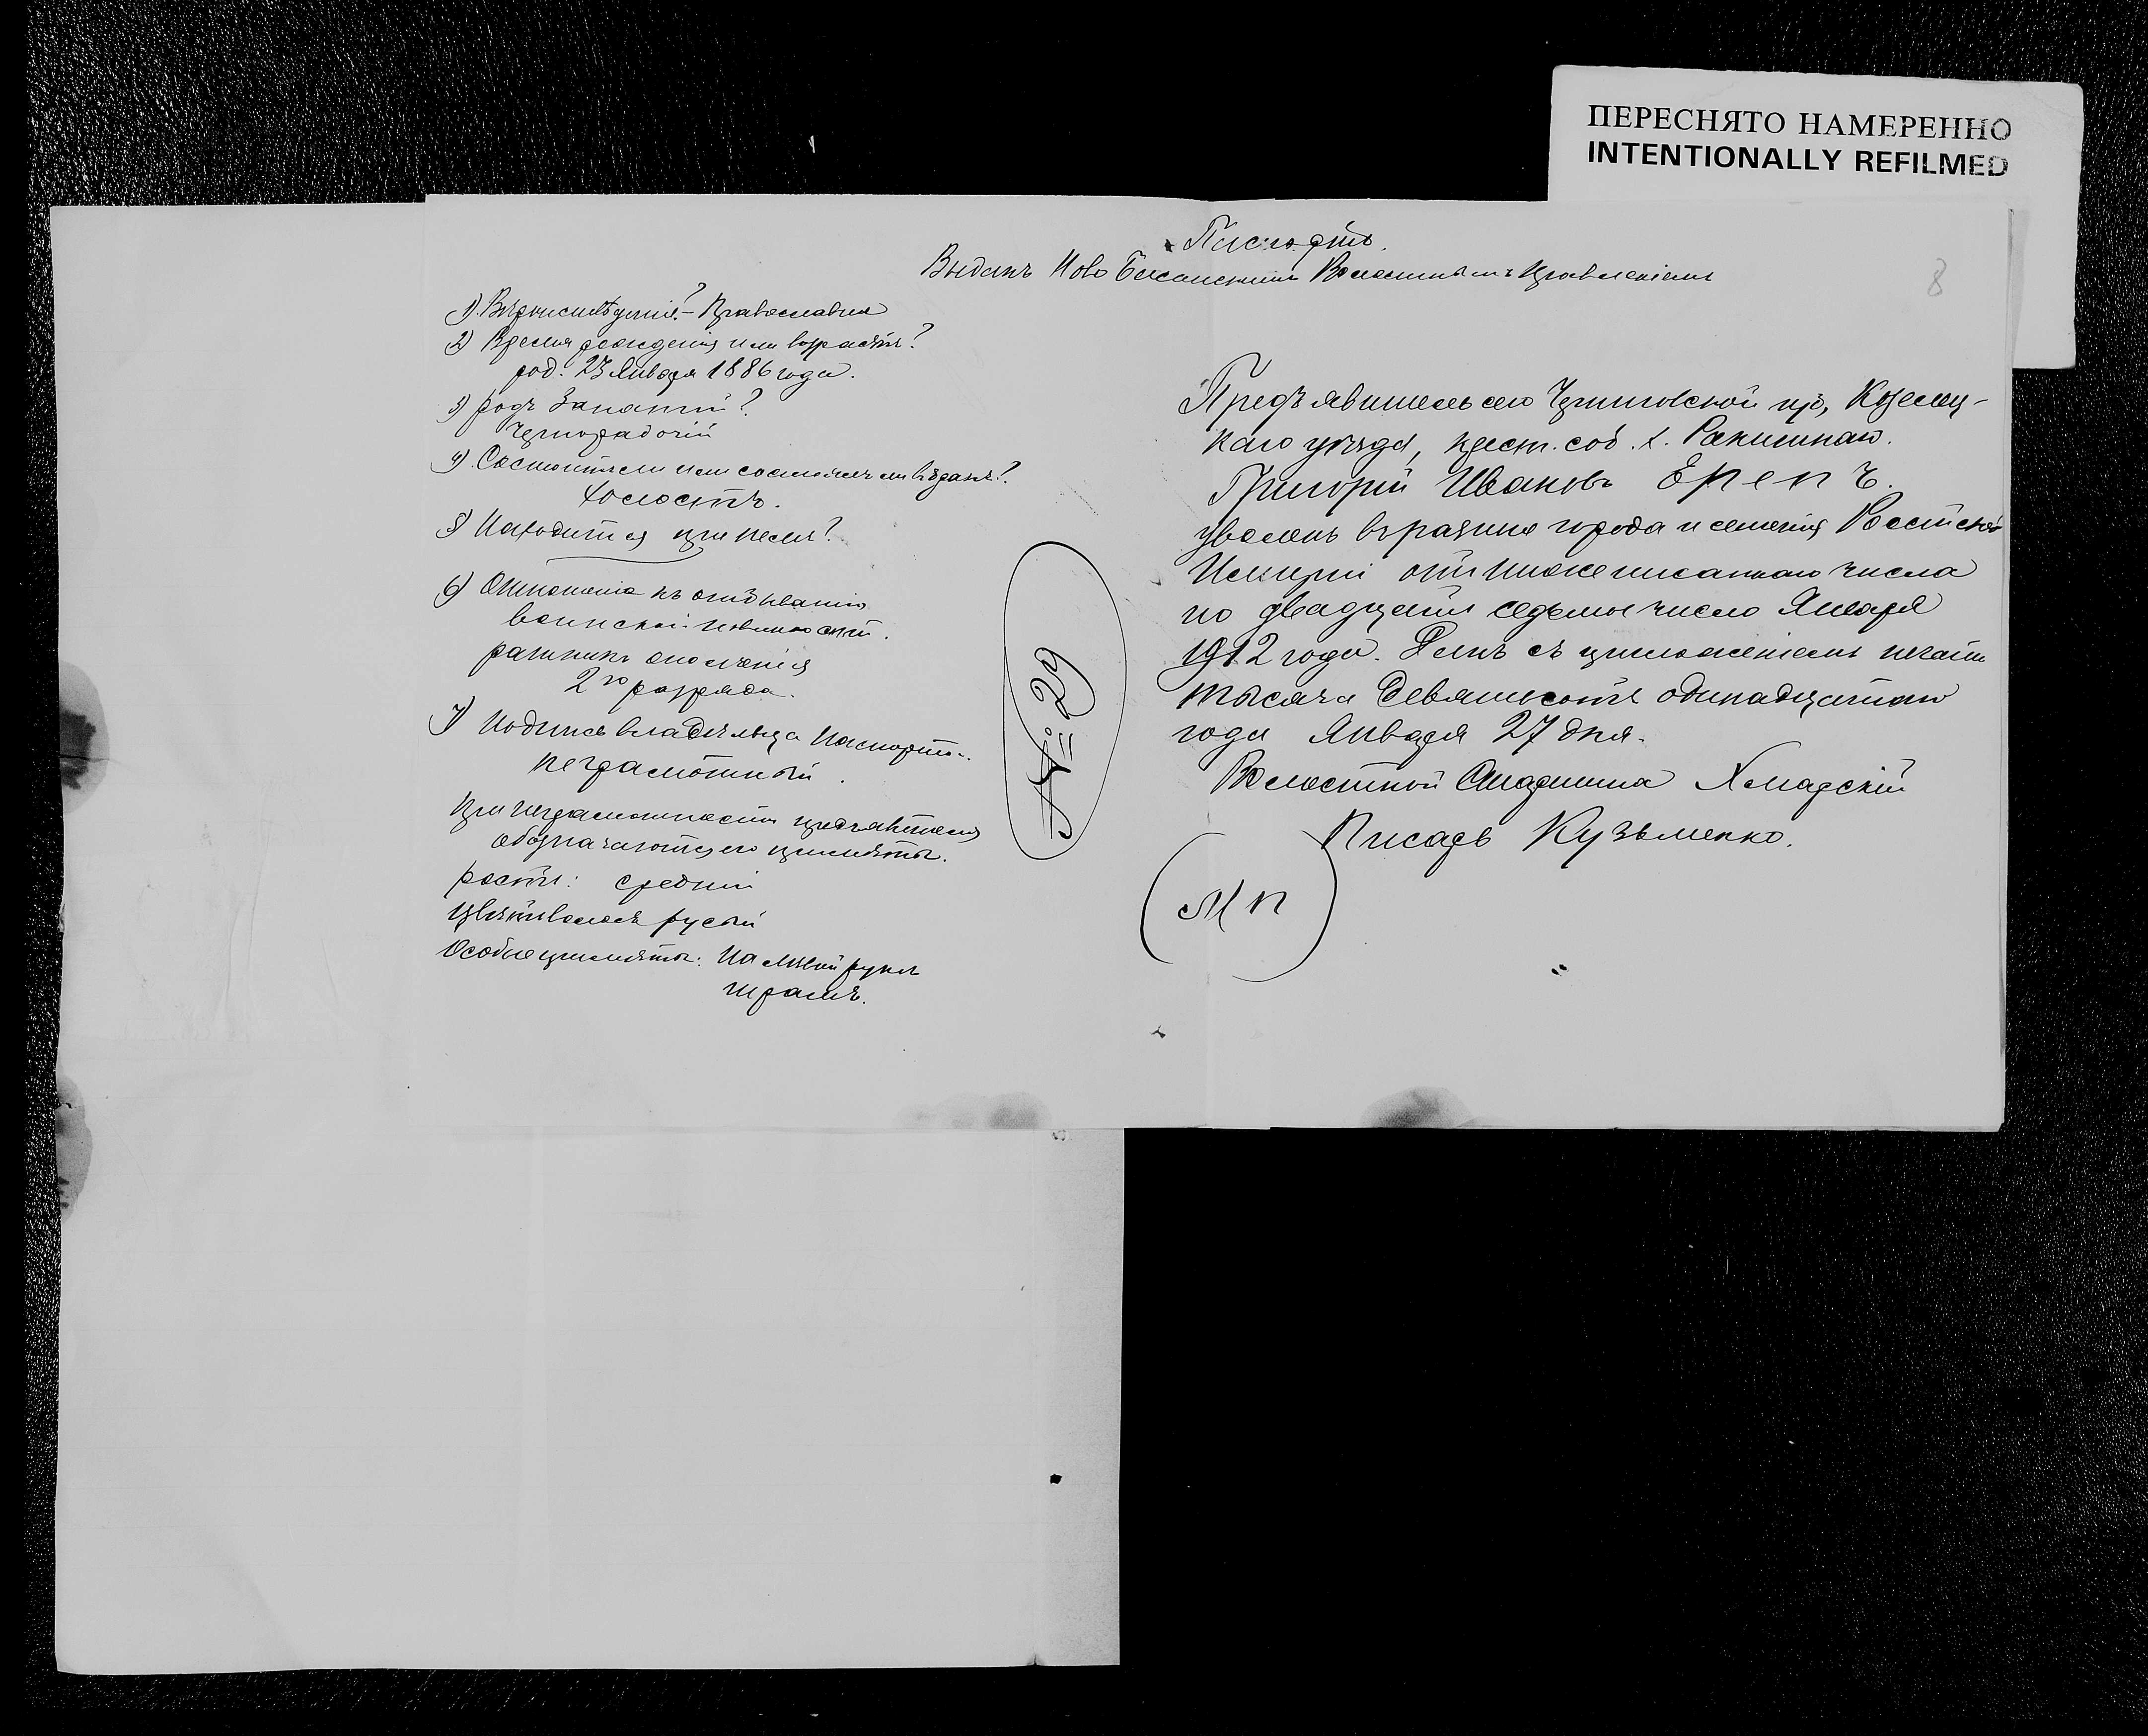 ПЕРЕСНЯТО НАМЕРЕННО
INTENTIONALLY REFILMED
8
Паспортъ.
Выданъ Ново Басанскимъ Волостнымъ Правленіемъ
1) Вѣроисповѣданіе? – Православная
2) Время рожденія или возрастъ?
род. 23 Января 1886 года.
3) родъ Занятій?
Чернорабочій
4) Состоитъ ли или состоялъ ли въ бракѣ?
Холостъ.
5) Находится при немъ?
6) Отношеніе къ отбыванію
воинской повинности.
ратникъ ополченія
2го разряда.
7) Подпись владѣльца Паспорта.
неграмотный.
При неграмотности предъявителя
обозначаются его примѣты.
ростъ: средній
Цвѣтъ волосъ русый
Особые примѣты: На лѣвой рукѣ
шрамъ.
№ 29
Предъявитель сего Черниговской губ, Козелец-
каго уѣзда, крест. соб. х.
Григорій Ивановъ Ерепъ.
уволенъ въ разные города и селенія Россійской
Имперіи отъ нижеписаннаго числа
по двадцать седьмое число Января
1912 года. Данъ съ приложеніемъ печати
тысяча девятьсотъ одинадцатаго
года Января 27 дня.
Волостной Старшина Хмарскій
Писарь Кузьменко.
МП